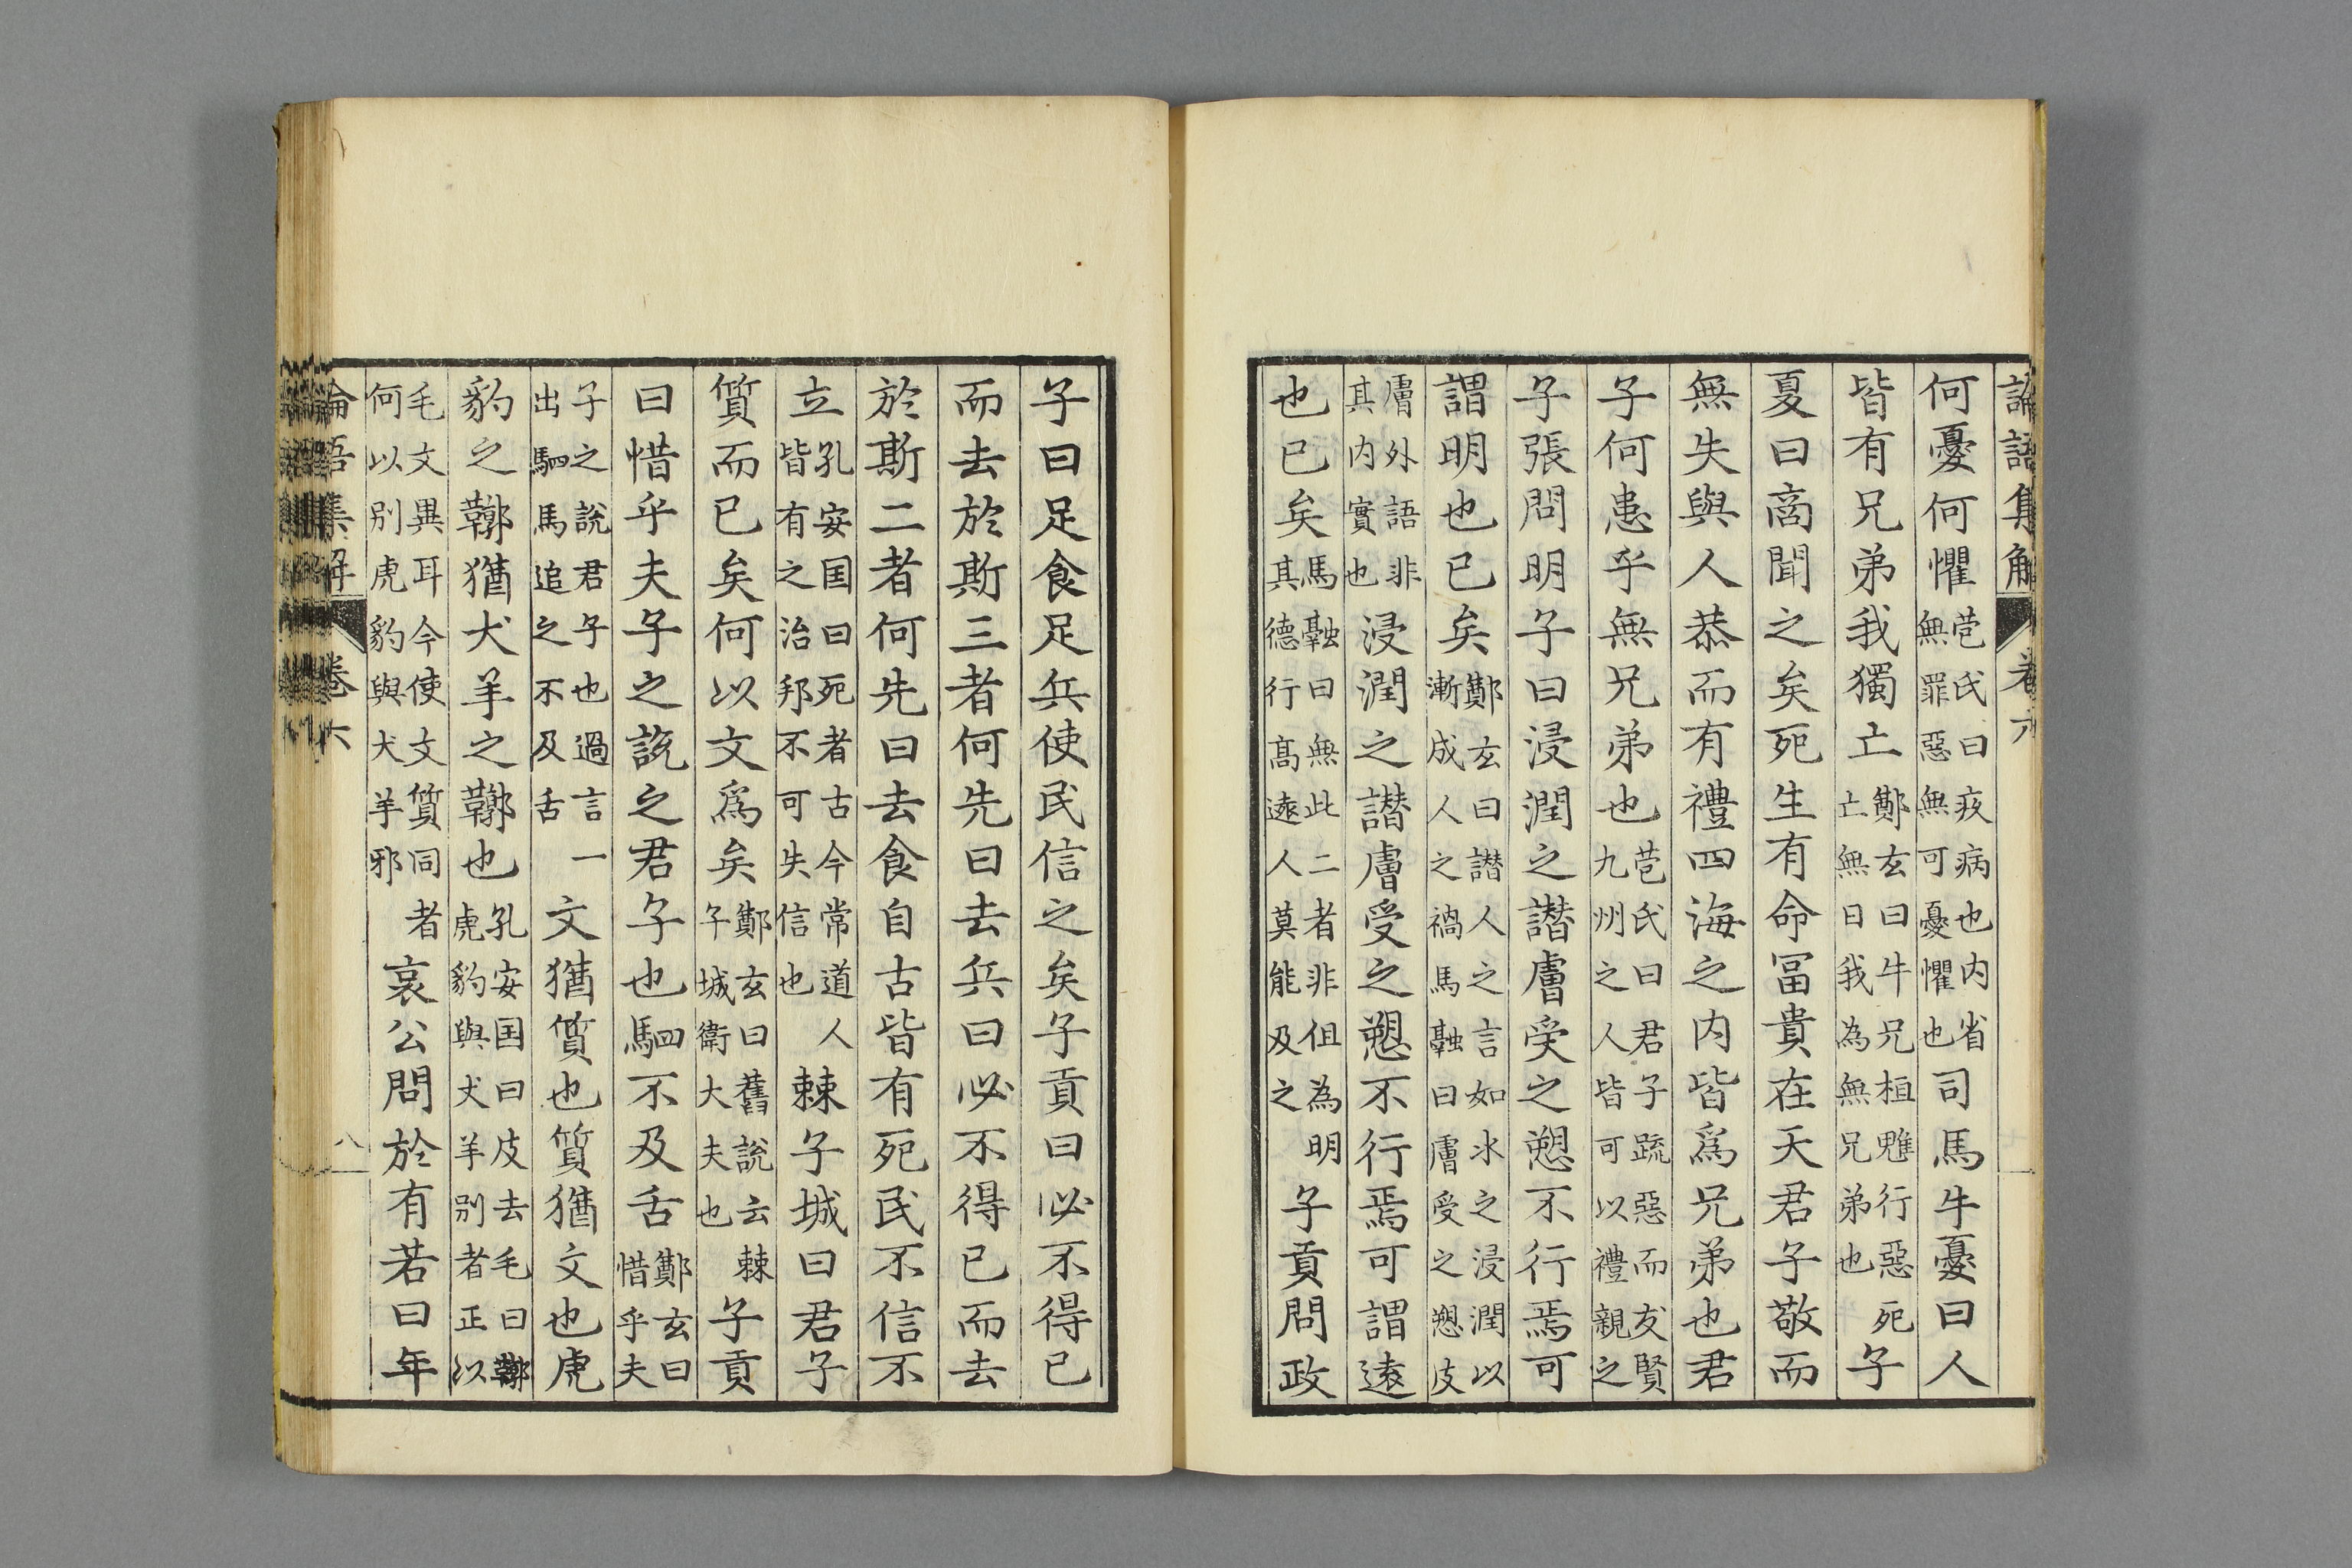 論語集解 卷六
何憂何懼苞氏曰疚病也内省無罪惡無可憂懼也司馬牛憂曰人
皆有兄弟我獨亡鄭玄曰牛兄桓魋行惡死亡無日我為無兄弟也子
夏曰商聞之矣死生有命冨貴在天君子敬而
無失與人恭而有禮四海之内皆爲兄弟也君
子何患乎無兄弟也苞氏曰君子疏惡而友賢九州之人皆可以禮親之
子張問明子曰浸潤之譖膚受之愬不行焉可
謂明也已矣鄭玄曰譖人之言如水之浸潤以漸成人之禍馬融曰膚受之愬皮
膚外語非其内實也浸潤之譖膚受之愬不行焉可謂遠
也已矣馬融曰無此二者非伹為明其德行髙遠人莫能及之子貢問政
子曰足食足兵使民信之矣子貢曰必不得已
而去於斯三者何先曰去兵曰必不得已而去
於斯二者何先曰去食自古皆有死民不信不
立孔安国曰死者古今常道人皆有之治邦不可失信也棘子城曰君子
質而已矣何以文爲矣鄭玄曰舊說云棘子城衛大夫也子貢
曰惜乎夫子之說之君子也駟不及舌鄭玄曰惜乎夫
子之說君子也過言一出駟馬追之不及舌文猶質也質猶文也虎
豹之鞹猶犬羊之鞹也孔安国曰皮去毛曰鞹虎豹與犬羊别者正以
毛文異耳今使文質同者何以别虎豹與犬羊邪哀公問於有若曰年
論語集解 卷六 八